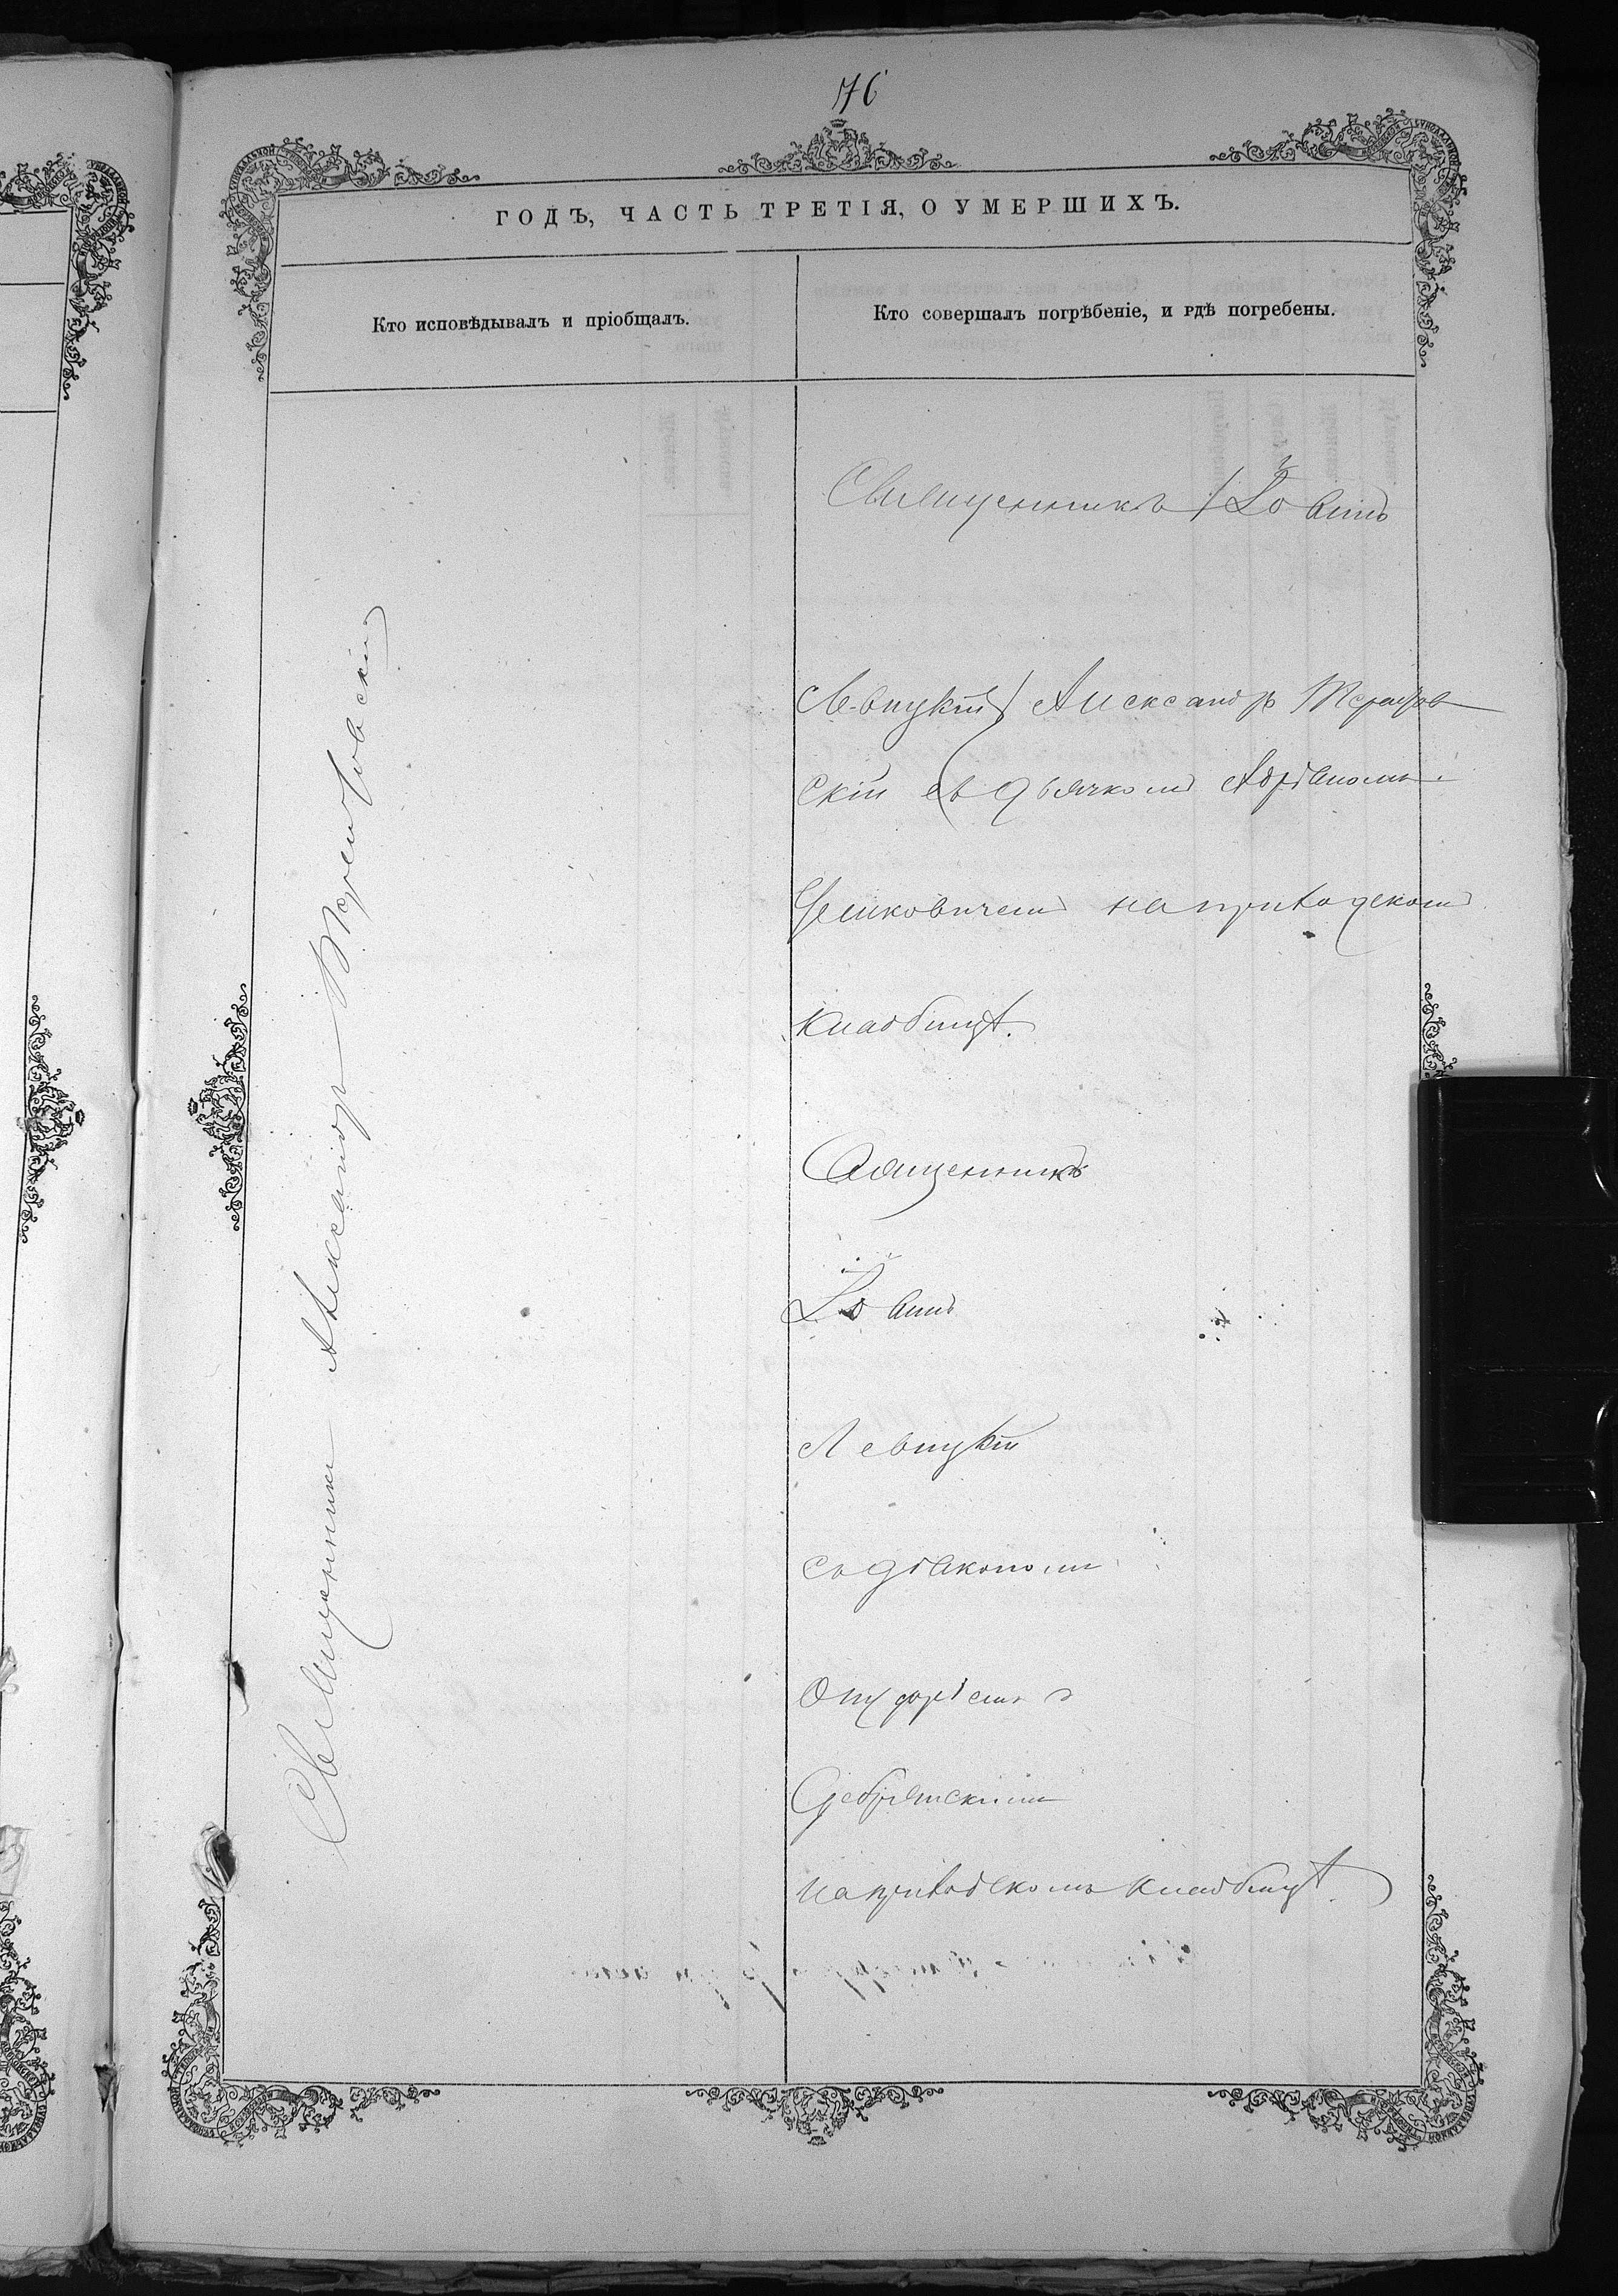 76
ГОДЪ, ЧАСТЬ ТРЕТІЯ, О УМЕРШИХЪ.
Кто исповѣдывалъ и пріобщалъ.
Кто совершалъ погрѣбеніе, и гдѣ погребены.
Священникъ Александръ
Священникъ Іоаннъ
Левицкій Александръ
скій съ дьячкомъ Адріаномъ
на приходскомъ
кладбищѣ.
Священникъ
Іоаннъ
Левицкій
съ діакономъ
Онуфріемъ
Сребрянскимъ
на приходскомъ кладбищѣ.